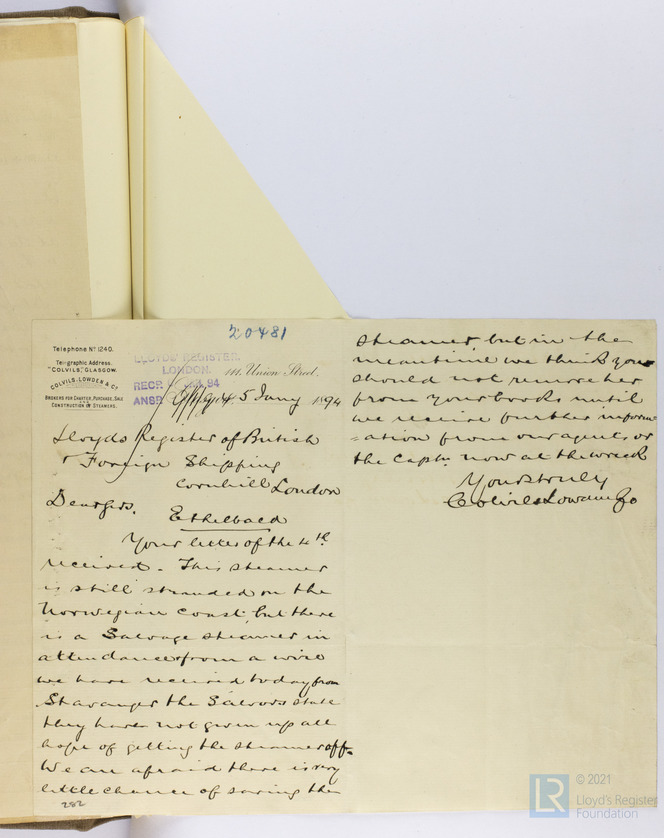 20481
Telephone No 1240.
Telegraphic Address.
"COLVILS," GLASGOW.
COLVILS, LOWDEN & Co
BROKERS FOR CHARTER, PURCHASE, SALE
CONSTRUCTION OF STEAMERS.
LLOYD'S REGISTER.
LONDON.
RECD. 94
ANSD
111 Union Street,
Glasgow. 5 Jany 1894
Lloyds Register of British
& Foreign Shipping
Cornhill London
Dear Sirs.
Ethelbald
Your letter of the 4th
received. This steamer
is still stranded on the
Norwegian Coast, but there
is a Salvage steamer in
attendance & from a wire
we have received today from
Stavanger the Salvors state
they have not given up all
hope of getting the steamer off.
We are afraid there is very
little chance of saving the
282
steamer, but in the
meantime we think you
should not remove her
from your books until
we receive further inform-
=ation from our agents or
the Captn. now at the wreck
Yours truly
Colvils Lowden & Co
© 2021
Lloyd's Register
Foundation
LR